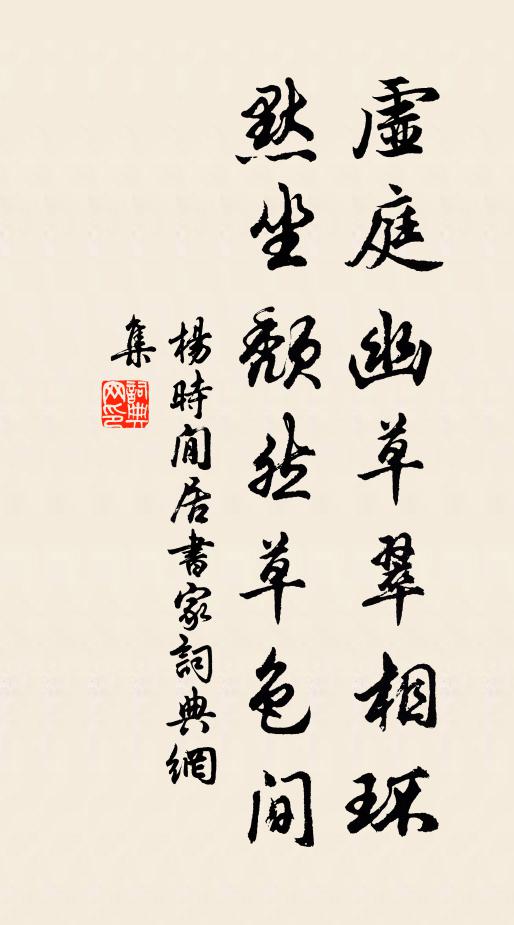 虛庭幽草翠相环
默坐頽然草色间
楊時閒居書家詞典網
集
詞典網印